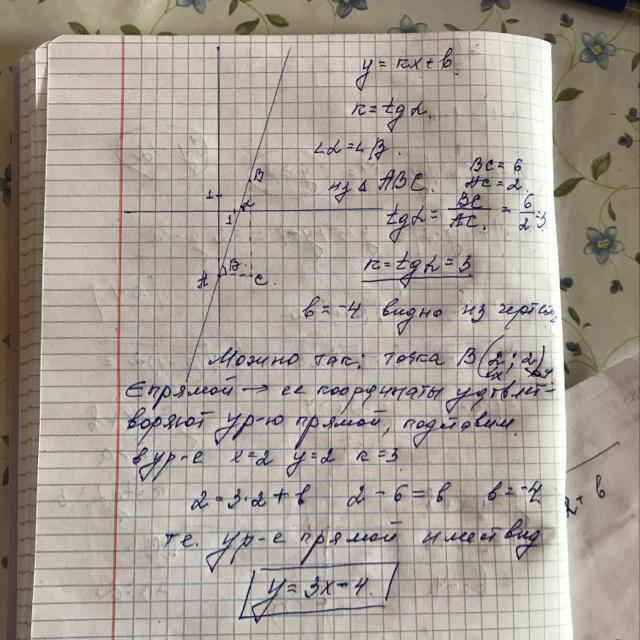 y = kx + b
k = tg α.
∠α = ∠β.
из Δ ABC.
BC = 6
AC = 2
tg α = BC/AC = 6/2 = 3
k = tg α = 3
b = -4 видно из чертежа
B
1
1
α
A
β
C
Можно так: точка B(2; 2)
x y
∈ прямой → ее координаты удовлет-
воряют ур-ю прямой, подставим
в ур-е x=2 y=2 k=3
2 = 3·2 + b 2 - 6 = b b = -4
т.е. ур-е прямой имеет вид
y = 3x - 4.
2 + b